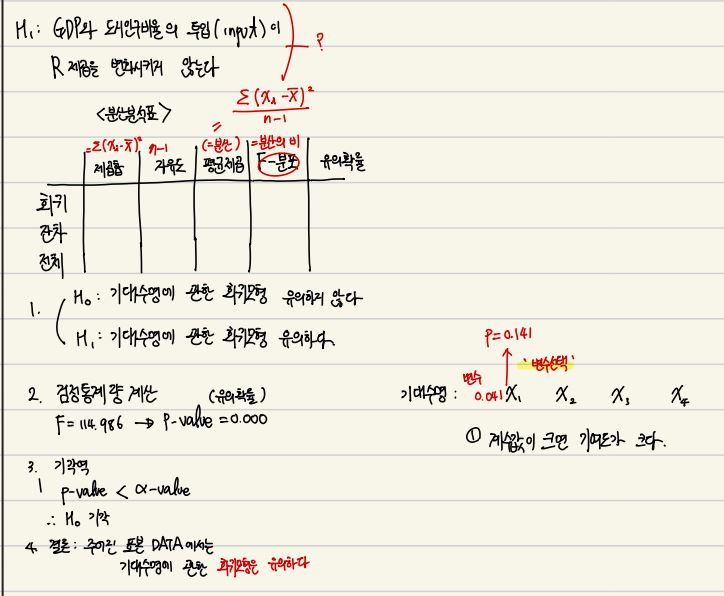 H₁: GDP와 도시인구비율의 투입(input)이
R제곱을 변화시키지 않는다
?
<분산분석표>
Σ(x₁-x̄)²
n-1
=
=Σ(x₁-x̄)² n-1 (=분산) =분산의 비
제곱합 자유도 평균제곱 F-분포 유의확률
회귀
잔차
전체
1. H₀: 기대수명에 관한 회귀모형 유의하지 않다
H₁: 기대수명에 관한 회귀모형 유의하다.
P=0.141
'변수선택'
변수
기대수명: 0.041 X₁ X₂ X₃ X₄
① 계수값이 크면 기여도가 크다.
2. 검정통계량 계산 (유의확률)
F=114.986 → P-value=0.000
3. 기각역
p-value < α-value
∴ H₀ 기각
4. 결론: 주어진 표본 DATA에서는
기대수명에 관한 회귀모형은 유의하다